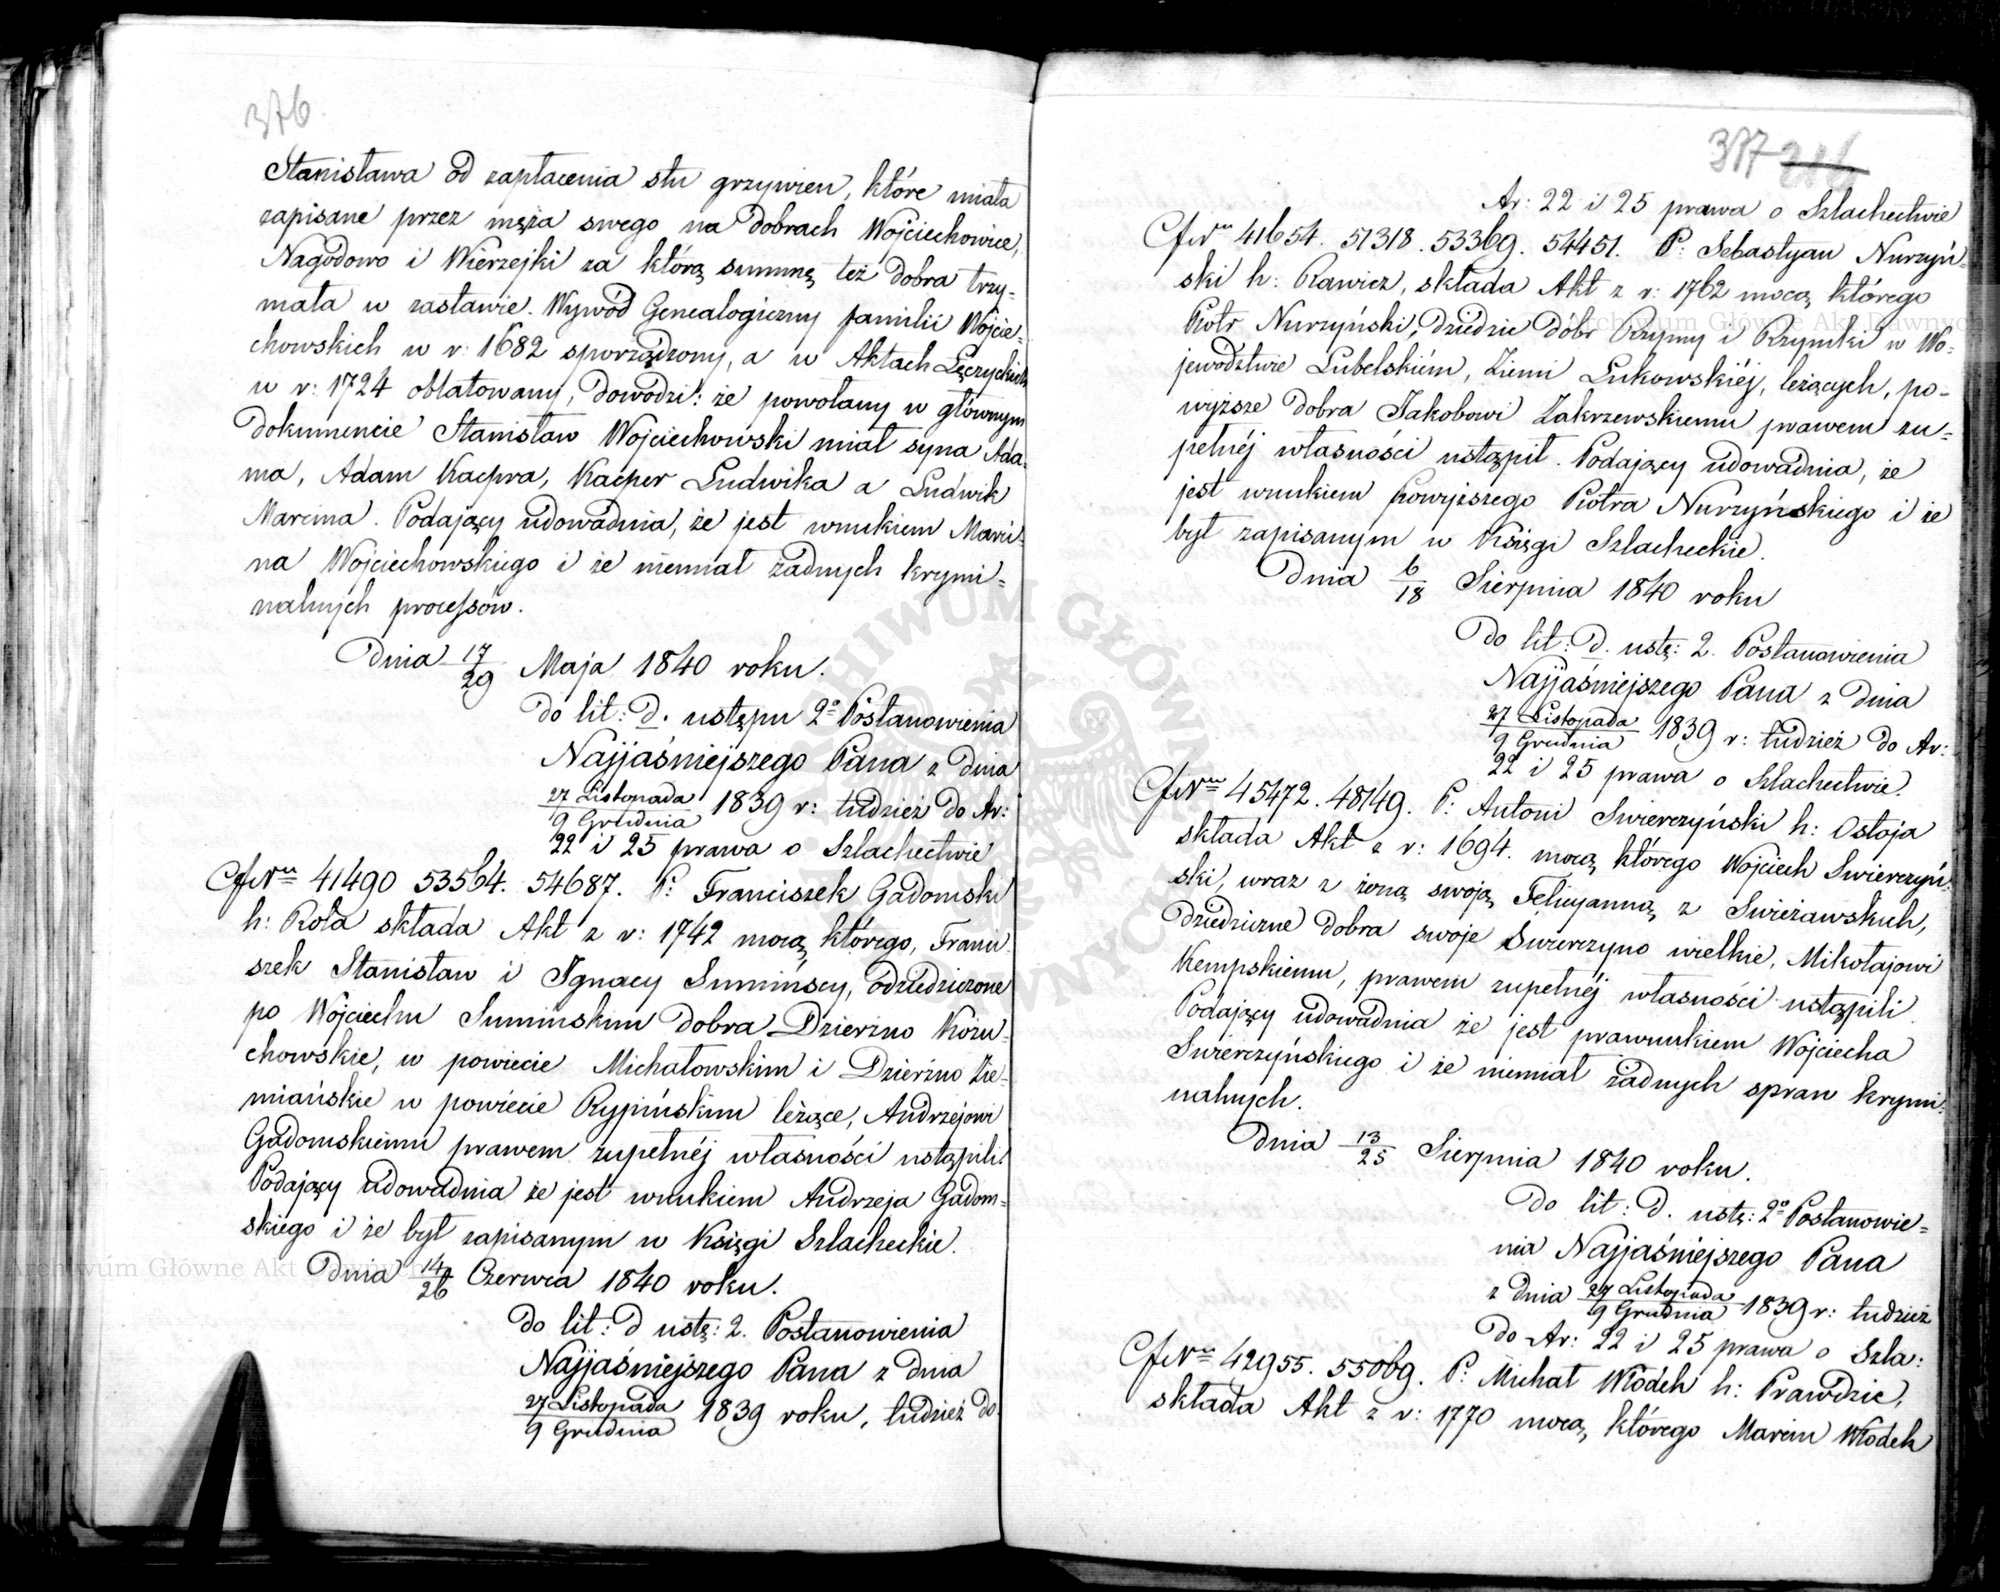 376.
Stanisława od zapłacenia stu grzywien, które miała
zapisane przez męża swego na dobrach Wojciechowice,
Nagodowo i Wierzejki za którą summę też dobra trzy-
mała w zastawie. Wywód Genealogiczny familii Wojcie-
chowskich w r: 1682 sporządzony, a w Aktach Łęczyckich
w r: 1724 oblatowany, dowodzi: że powołany w głównym
dokumencie Stanisław Wojciechowski miał syna Ada-
ma, Adam Kacpra, Kacper Ludwika a Ludwik
Marcina. Podający udowadnia, że jest wnukiem Marci-
na Wojciechowskiego i że niemiał żadnych krymi=
nalnych processów.
Dnia 17/29 Maja 1840 roku.
Do lit: D. ustępu 2º Postanowienia
Najjaśniejszego Pana z dnia
27 Listopada/9 Grudnia 1839 r: tudzież do Ar:
22 i 25 prawa o Szlachectwie
41490 53564. 54687. P: Franciszek Gadomski
h: Rola składa Akt z r: 1742 mocą którego, Franci-
szek Stanisław i Ignacy Sumińscy, odziedziczone
po Wojciechu Sumińskim dobra Dzierżno Kożu-
chowskie, w powiecie Michałowskim i Dzierżno Zie-
miańskie w powiecie Rypińskim leżące, Andrzejowi
Gadomskiemu prawem zupełnéj własności ustąpili.
Podający udowadnia że jest wnukiem Andrzeja Gadom-
skiego i że był zapisanym w Księgi Szlacheckie.
Dnia 14/26 Czerwca 1840 roku.
Do lit: D ustę: 2. Postanowienia
Najjaśniejszego Pana z dnia
27 Listopada/9 Grudnia 1839 roku, tudzież do
377
Ar: 22 i 25 prawa o Szlachectwie
41654. 51318. 53369. 54451. P: Sebastyan Nurzyń-
ski h: Rawicz, składa Akt z r: 1762 mocą którego
Piotr Nurzyński, dziedzic dobr Rzymy i Rzymki w Wo-
jewództwie Lubelskiém, Ziemi Łukowskiéj, leżących, po-
wyższe dobra Jakobowi Zakrzewskiemu prawem zu-
pełnéj własności ustąpił. Podający udowadnia, że
jest wnukiem powyższego Piotra Nurzyńskiego i że
był zapisanym w Księgi Szlacheckie.
Dnia 6/18 Sierpnia 1840 roku
Do lit: D. ustę: 2. Postanowienia
Najjaśniejszego Pana z dnia
27 Listopada/9 Grudnia 1839 r: tudzież do Ar:
22 i 25 prawa o Szlachectwie.
45472. 48149. P: Antoni Swierczyński h: Ostoja
składa Akt z r: 1694. mocą którego Wojciech Swierczyń-
ski, wraz z żoną swoją Felicyanną z Swieżawskich,
dziedziczne dobra swoje Świerczyno wielkie, Mikołajowi
Kempskiemu, prawem zupełnéj własności ustąpili.
Podający udowadnia że jest prawnukiem Wojciecha
Swierczyńskiego i że niemiał żadnych spraw krymi-
nalnych.
Dnia 13/25 Sierpnia 1840 roku.
Do lit: D. ustę: 2º Postanowie-
nia Najjaśniejszego Pana
z dnia 27 Listopada/9 Grudnia 1839 r: tudzież
do Ar: 22 i 25 prawa o Szla:
42955. 55069. P: Michał Włodek h: Prawdzic,
składa Akt z r: 1770 mocą, którego Marcin Włodek
Archiwum Główne Akt Dawnych